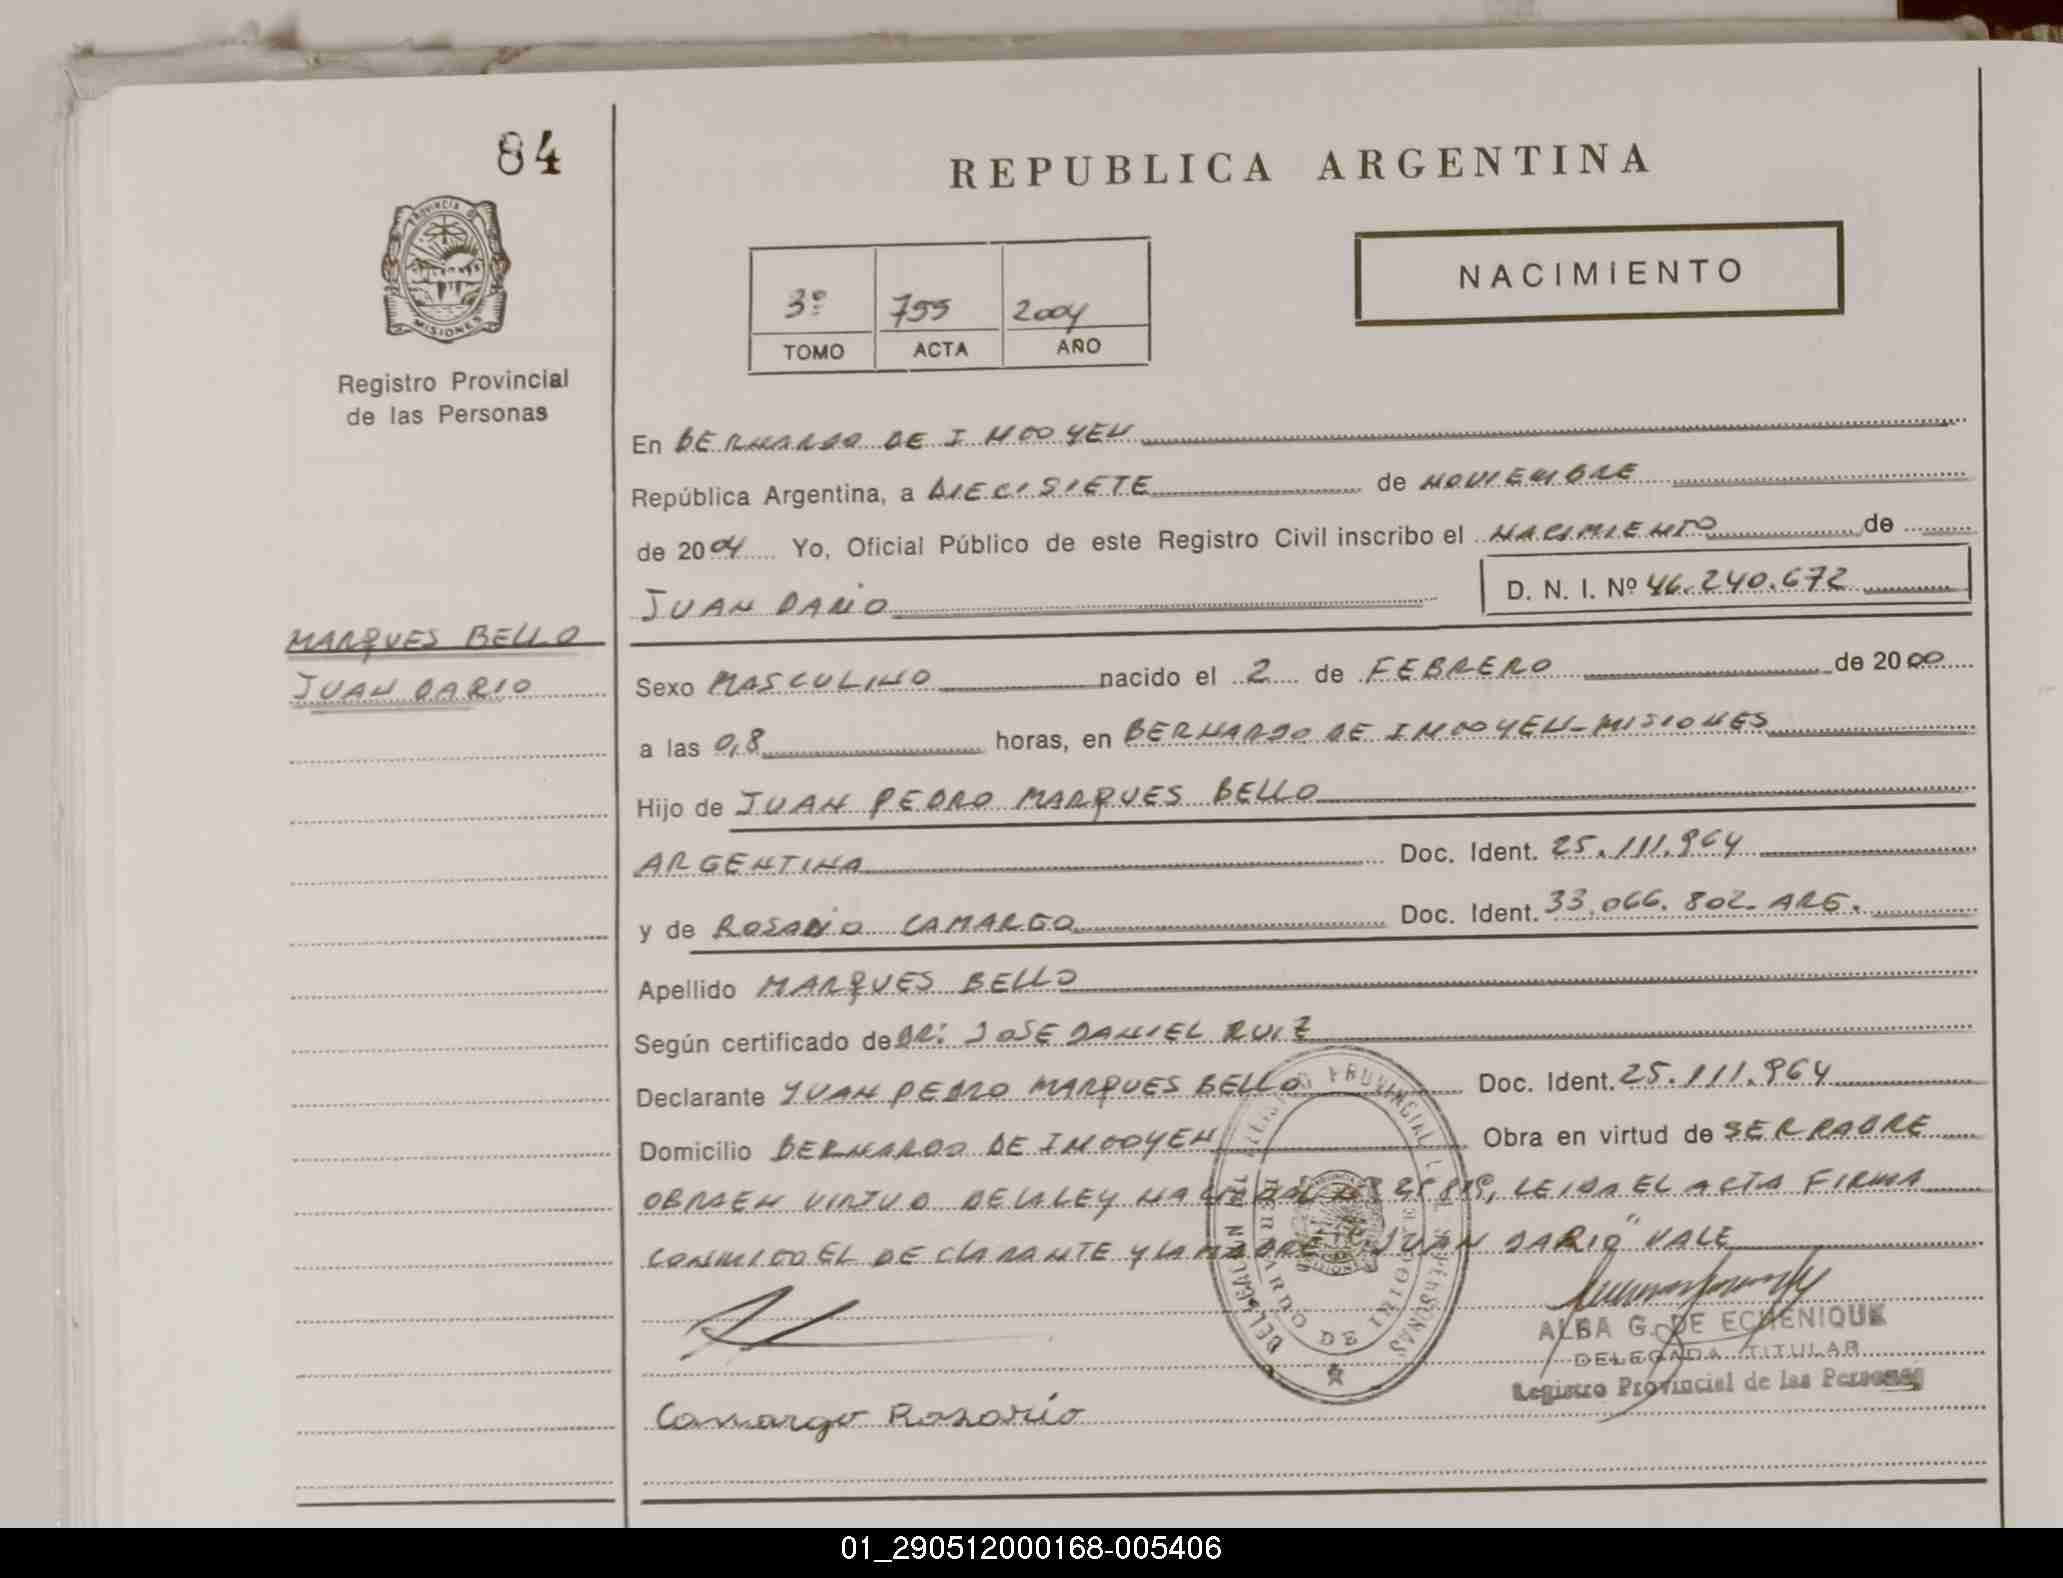 84
PROVINCIA DE
MISIONES
Registro Provincial
de las Personas
MARQUES BELLO
JUAN DARIO
REPUBLICA ARGENTINA
3º 755 2004
TOMO ACTA AÑO
NACIMIENTO
En BERNARDO DE IRIGOYEN
República Argentina, a DIECISIETE de NOVIEMBRE
de 2004 Yo, Oficial Público de este Registro Civil inscribo el NACIMIENTO de
JUAN DARIO D. N. I. Nº 46.240.672
Sexo MASCULINO nacido el 2 de FEBRERO de 2000
a las 0,8 horas, en BERNARDO DE IRIGOYEN-MISIONES
Hijo de JUAN PEDRO MARQUES BELLO
ARGENTINA Doc. Ident. 25.111.964
y de ROSARIO CAMARGO Doc. Ident. 33.066.802- ARG.
Apellido MARQUES BELLO
Según certificado de DR: JOSE DANIEL RUIZ
Declarante JUAN PEDRO MARQUES BELLO Doc. Ident. 25.111.964
Domicilio BERNARDO DE IRIGOYEN Obra en virtud de SER PADRE
OBRA EN VIRTUD DE LA LEY NACIONAL LEIDA EL ACTA FIRMA
CONMIGO EL DECLARANTE Y LA MADRE "JUAN DARIO" VALE
REGISTRO PROVINCIAL DE LAS PERSONAS
DELEGACION
BERNARDO DE IRIGOYEN
ALBA G. DE ECHENIQUE
DELEGADA TITULAR
Registro Provincial de las Personas
Camargo Rosario
01_290512000168-005406